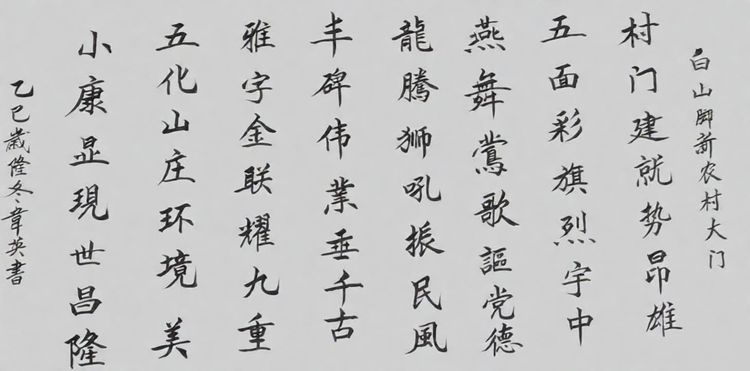 白山脚新农村大门
村门建就势昂雄
五面彩旗烈宇中
燕舞鶯歌謳党德
龍騰狮吼振民風
丰碑伟業垂千古
雅字金联耀九重
五化山庄环境美
小康显現世昌隆
乙巳歲隆冬韋英書